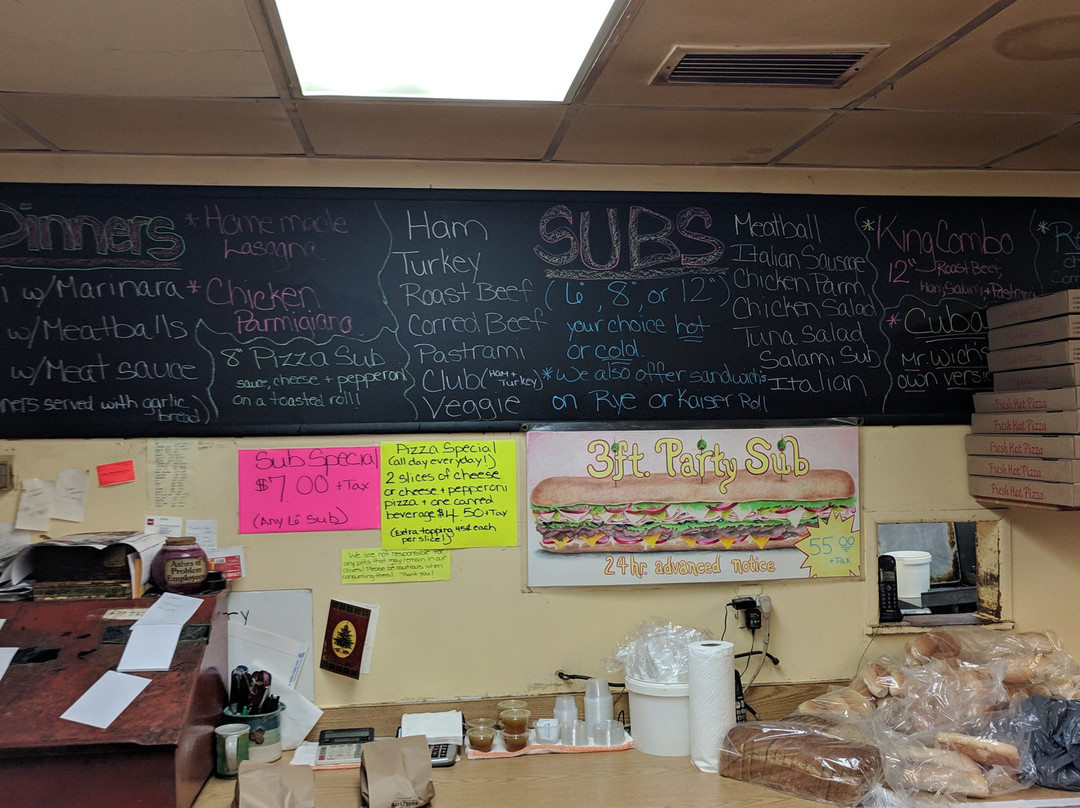 Dinners
w/Marinara
w/Meatballs
w/Meat sauce
served with garlic
bread)
* Homemade
Lasagna
* Chicken
Parmigiana
8" Pizza Sub
sauce, cheese + pepperoni
on a toasted roll!
Ham
Turkey
Roast Beef
Corned Beef
Pastrami
Club (Ham + Turkey)
Veggie
SUBS
(6", 8", or 12")
your choice hot
or cold.
*We also offer sandwich's
on Rye or Kaiser Roll
Meatball
Italian Sausage
Chicken Parm
Chicken Salad
Tuna Salad
Salami Sub
Italian
* King Combo
12" Roast Beef,
Ham, Salami, + Pastrami
* Cuba
Mr. Wich's
own vers
Sub Special
$7.00 + Tax
(Any 6" Sub)
Pizza Special
(all day everyday!)
2 slices of cheese
or cheese + pepperoni
pizza + one canned
beverage $4.50 + Tax
(Extra topping 45¢ each
per slice)
We are not responsible for
any pits that may remain in our
olives! Please be cautious when
consuming them! Thank you!
3ft. Party Sub
55.00
+ Tax
24 hr. advanced notice
Ashes of
Problem
Employees
Fresh Hot Pizza
Fresh Hot Pizza
Fresh Hot Pizza
Fresh Hot Pizza
Fresh Hot Pizza